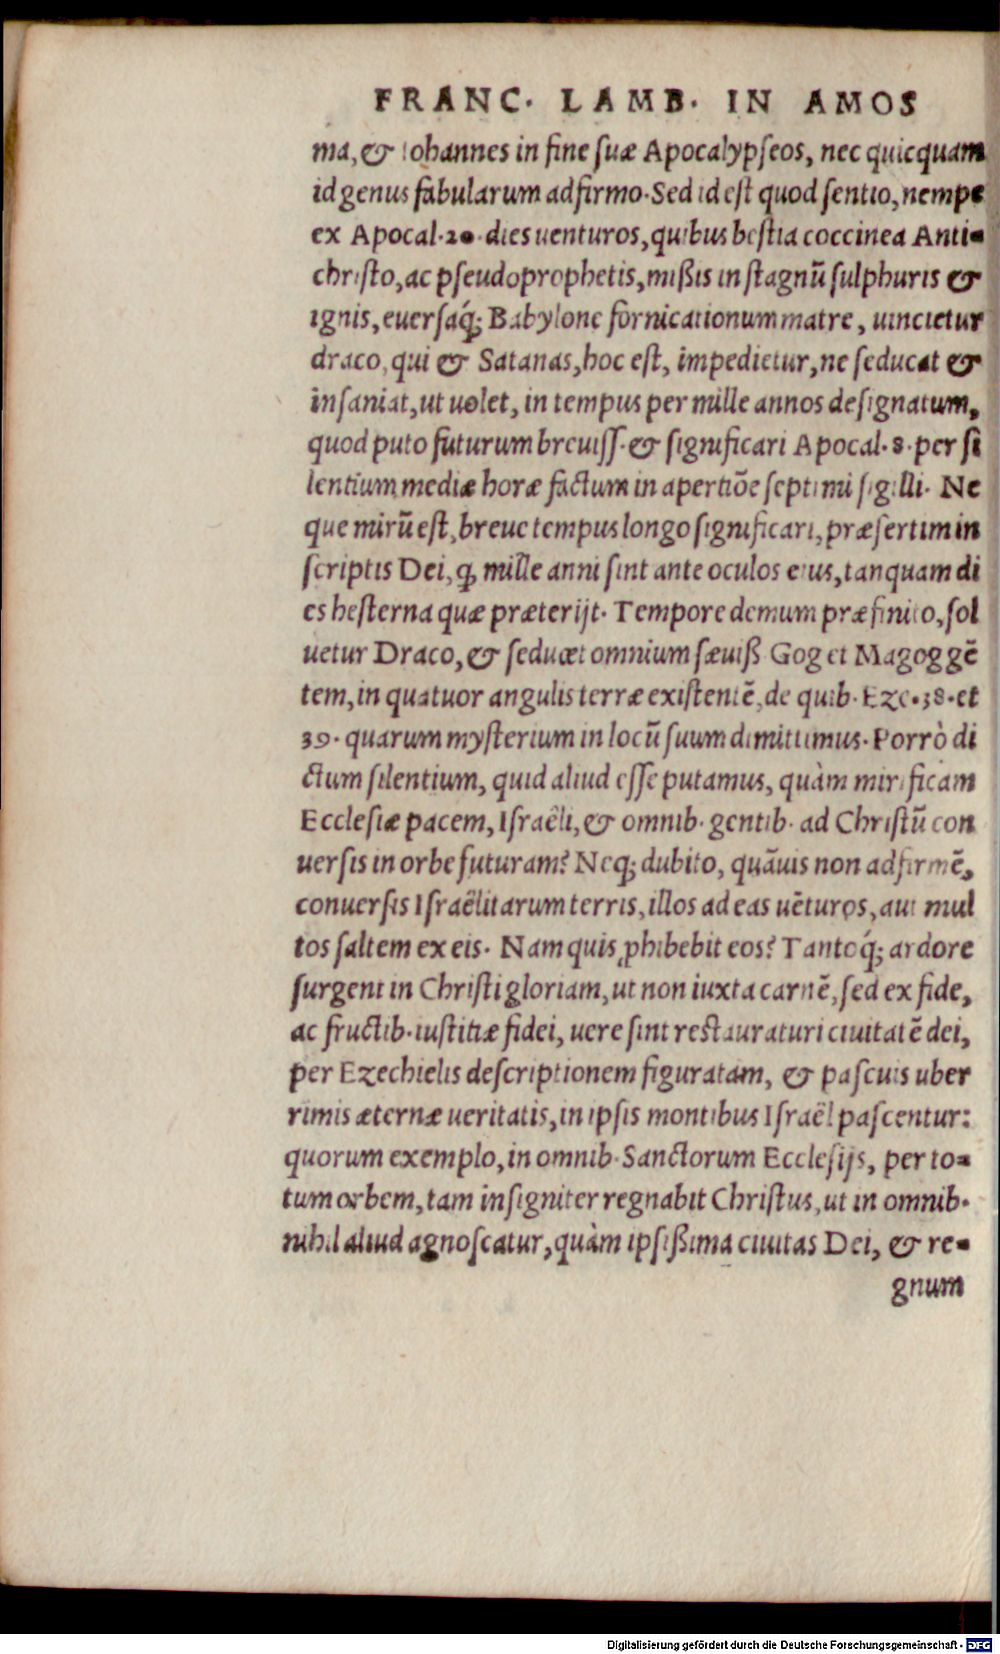 FRANC. LAMB. IN AMOS
ma, & Iohannes in fine ſuæ Apocalypſeos, nec quicquam
id genus fabularum adfirmo. Sed id eſt quod ſentio, nempe
ex Apocal. 20. dies uenturos, quibus beſtia coccinea Anti-
chriſto, ac pſeudoprophetis, mißis in ſtagnū ſulphuris &
ignis, euerſaq́; Babylone fornicationum matre, uincietur
draco, qui & Satanas, hoc eſt, impedietur, ne ſeducat &
inſaniat, ut uolet, in tempus per mille annos deſignatum,
quod puto futurum breuiſſ. & ſignificari Apocal. 8. per ſi
lentium mediæ horæ factum in apertiōe ſeptimi ſigilli. Ne
que mirū eſt, breue tempus longo ſignificari, præſertim in
ſcriptis Dei, ꝙ mille anni ſint ante oculos eius, tanquam di
es heſterna quæ præterijt. Tempore demum præfinito, ſol
uetur Draco, & ſeducet omnium ſæuiß. Gog et Magog gē
tem, in quatuor angulis terræ exiſtentē, de quib. Eze. 38. et
39. quarum myſterium in locū ſuum dimittimus. Porrò di
ctum ſilentium, quid aliud eſſe putamus, quàm mirificam
Eccleſiæ pacem, Iſraëli, & omnib. gentib. ad Chriſtū con
uerſis in orbe futuram? Neq; dubito, quāuis non adfirmē,
conuerſis Iſraëlitarum terris, illos ad eas uēturos, aut mul
tos ſaltem ex eis. Nam quis ꝓhibebit eos? Tantoq́; ardore
ſurgent in Chriſti gloriam, ut non iuxta carnē, ſed ex fide,
ac fructib. iuſtitiæ fidei, uere ſint reſtauraturi ciuitatē dei,
per Ezechielis deſcriptionem figuratam, & paſcuis uber
rimis æternæ ueritatis, in ipſis montibus Iſraël paſcentur:
quorum exemplo, in omnib. Sanctorum Eccleſijs, per to-
tum orbem, tam inſigniter regnabit Chriſtus, ut in omnib.
nihil aliud agnoſcatur, quàm ipſißima ciuitas Dei, & re-
gnum
Digitalisierung gefördert durch die Deutsche Forschungsgemeinschaft - DFG